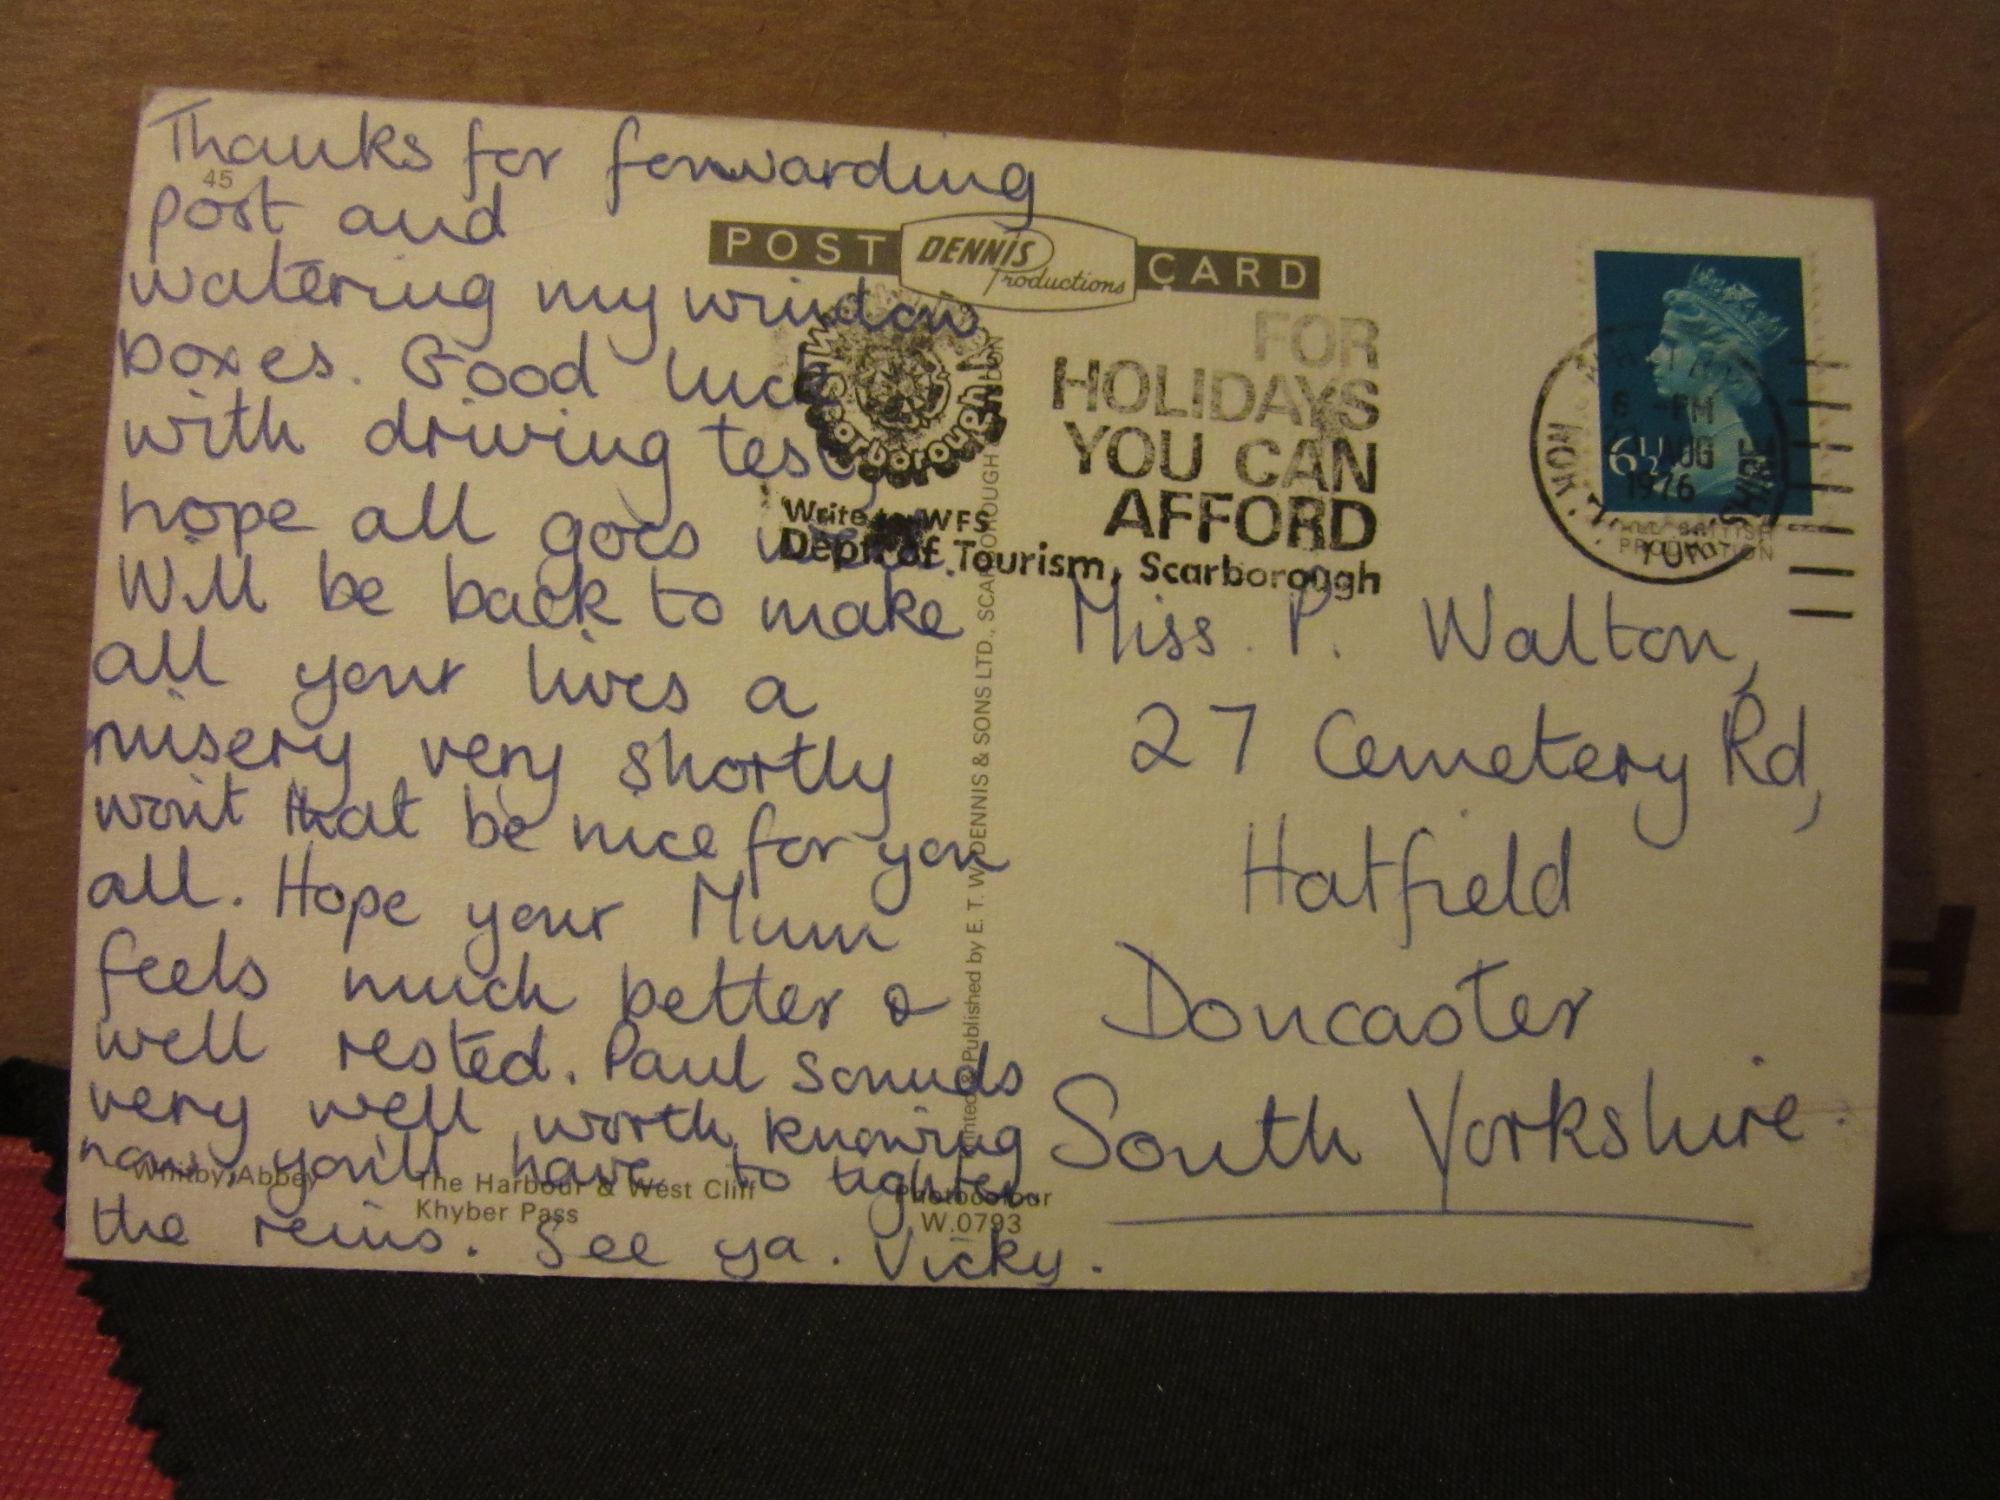 Thanks for forwarding
post and
watering my window
boxes. Good luck
with driving test,
hope all goes well.
Will be back to make
all your lives a
misery very shortly
won't that be nice for you
all. Hope your Mum
feels much better &
well rested. Paul sounds
very well worth knowing
now, you'll have to tighten
the reins. See ya. Vicky.
45
POST DENNIS Productions CARD
Scarborough
FOR
HOLIDAYS
YOU CAN
AFFORD
Write to WFS
Dept. of Tourism, Scarborough
6½
6 -PM
AUG
1976
YORKSHIRE
Miss. P. Walton,
27 Cemetery Rd,
Hatfield
Doncaster
South Yorkshire.
Printed & Published by E. T. W. DENNIS & SONS LTD., SCARBOROUGH LONDON
Whitby, Abbey
The Harbour & West Cliff
Khyber Pass
Photocolour
W.0793